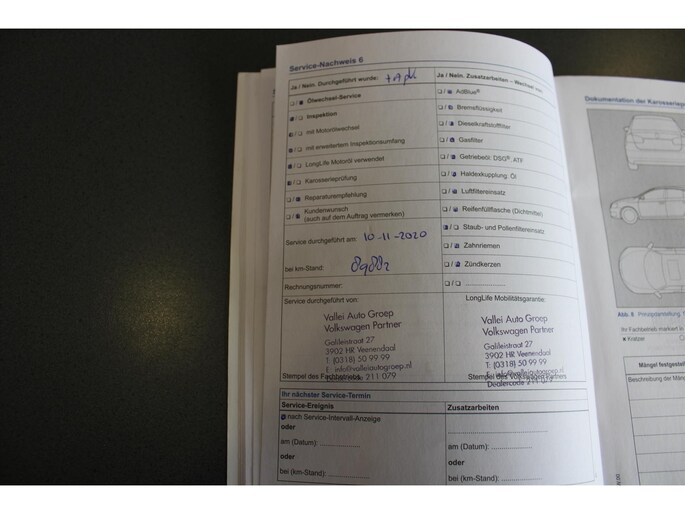 Service-Nachweis 6
Ja / Nein. Durchgeführt wurde:
Ölwechsel-Service
Inspektion
mit Motorölwechsel
mit erweitertem Inspektionsumfang
LongLife Motoröl verwendet
Karosserieprüfung
Reparaturempfehlung
Kundenwunsch
(auch auf dem Auftrag vermerken)
Service durchgeführt am: 10-11-2020
bei km-Stand:
Rechnungsnummer:
Service durchgeführt von:
Vallei Auto Groep
Volkswagen Partner
Galileistraat 27
3902 HR Veenendaal
T: (0318) 50 99 99
E: info@valleiautogroep.nl
Stempel des Fachbetriebs 211 079
Ja / Nein. Zusatzarbeiten – Wechsel von
AdBlue®
Bremsflüssigkeit
Dieselkraftstofffilter
Gasfilter
Getriebeöl: DSG®, ATF
Haldexkupplung: Öl
Luftfiltereinsatz
Reifenfüllflasche (Dichtmittel)
Staub- und Pollenfiltereinsatz
Zahnriemen
Zündkerzen
LongLife Mobilitätsgarantie:
Vallei Auto Groep
Volkswagen Partner
Galileistraat 27
3902 HR Veenendaal
T: (0318) 50 99 99
E: info@valleiautogroep.nl
Stempel des Volkswagen Partners
Dealercode 211 079
Ihr nächster Service-Termin
Service-Ereignis
nach Service-Intervall-Anzeige
oder
am (Datum):
oder
bei (km-Stand):
Zusatzarbeiten
am (Datum):
oder
bei (km-Stand):
Dokumentation der
Abb. 8
Ihr Fachbetrieb markiert in
Kratzer
Mängel festgestell
Beschreibung der Mäng